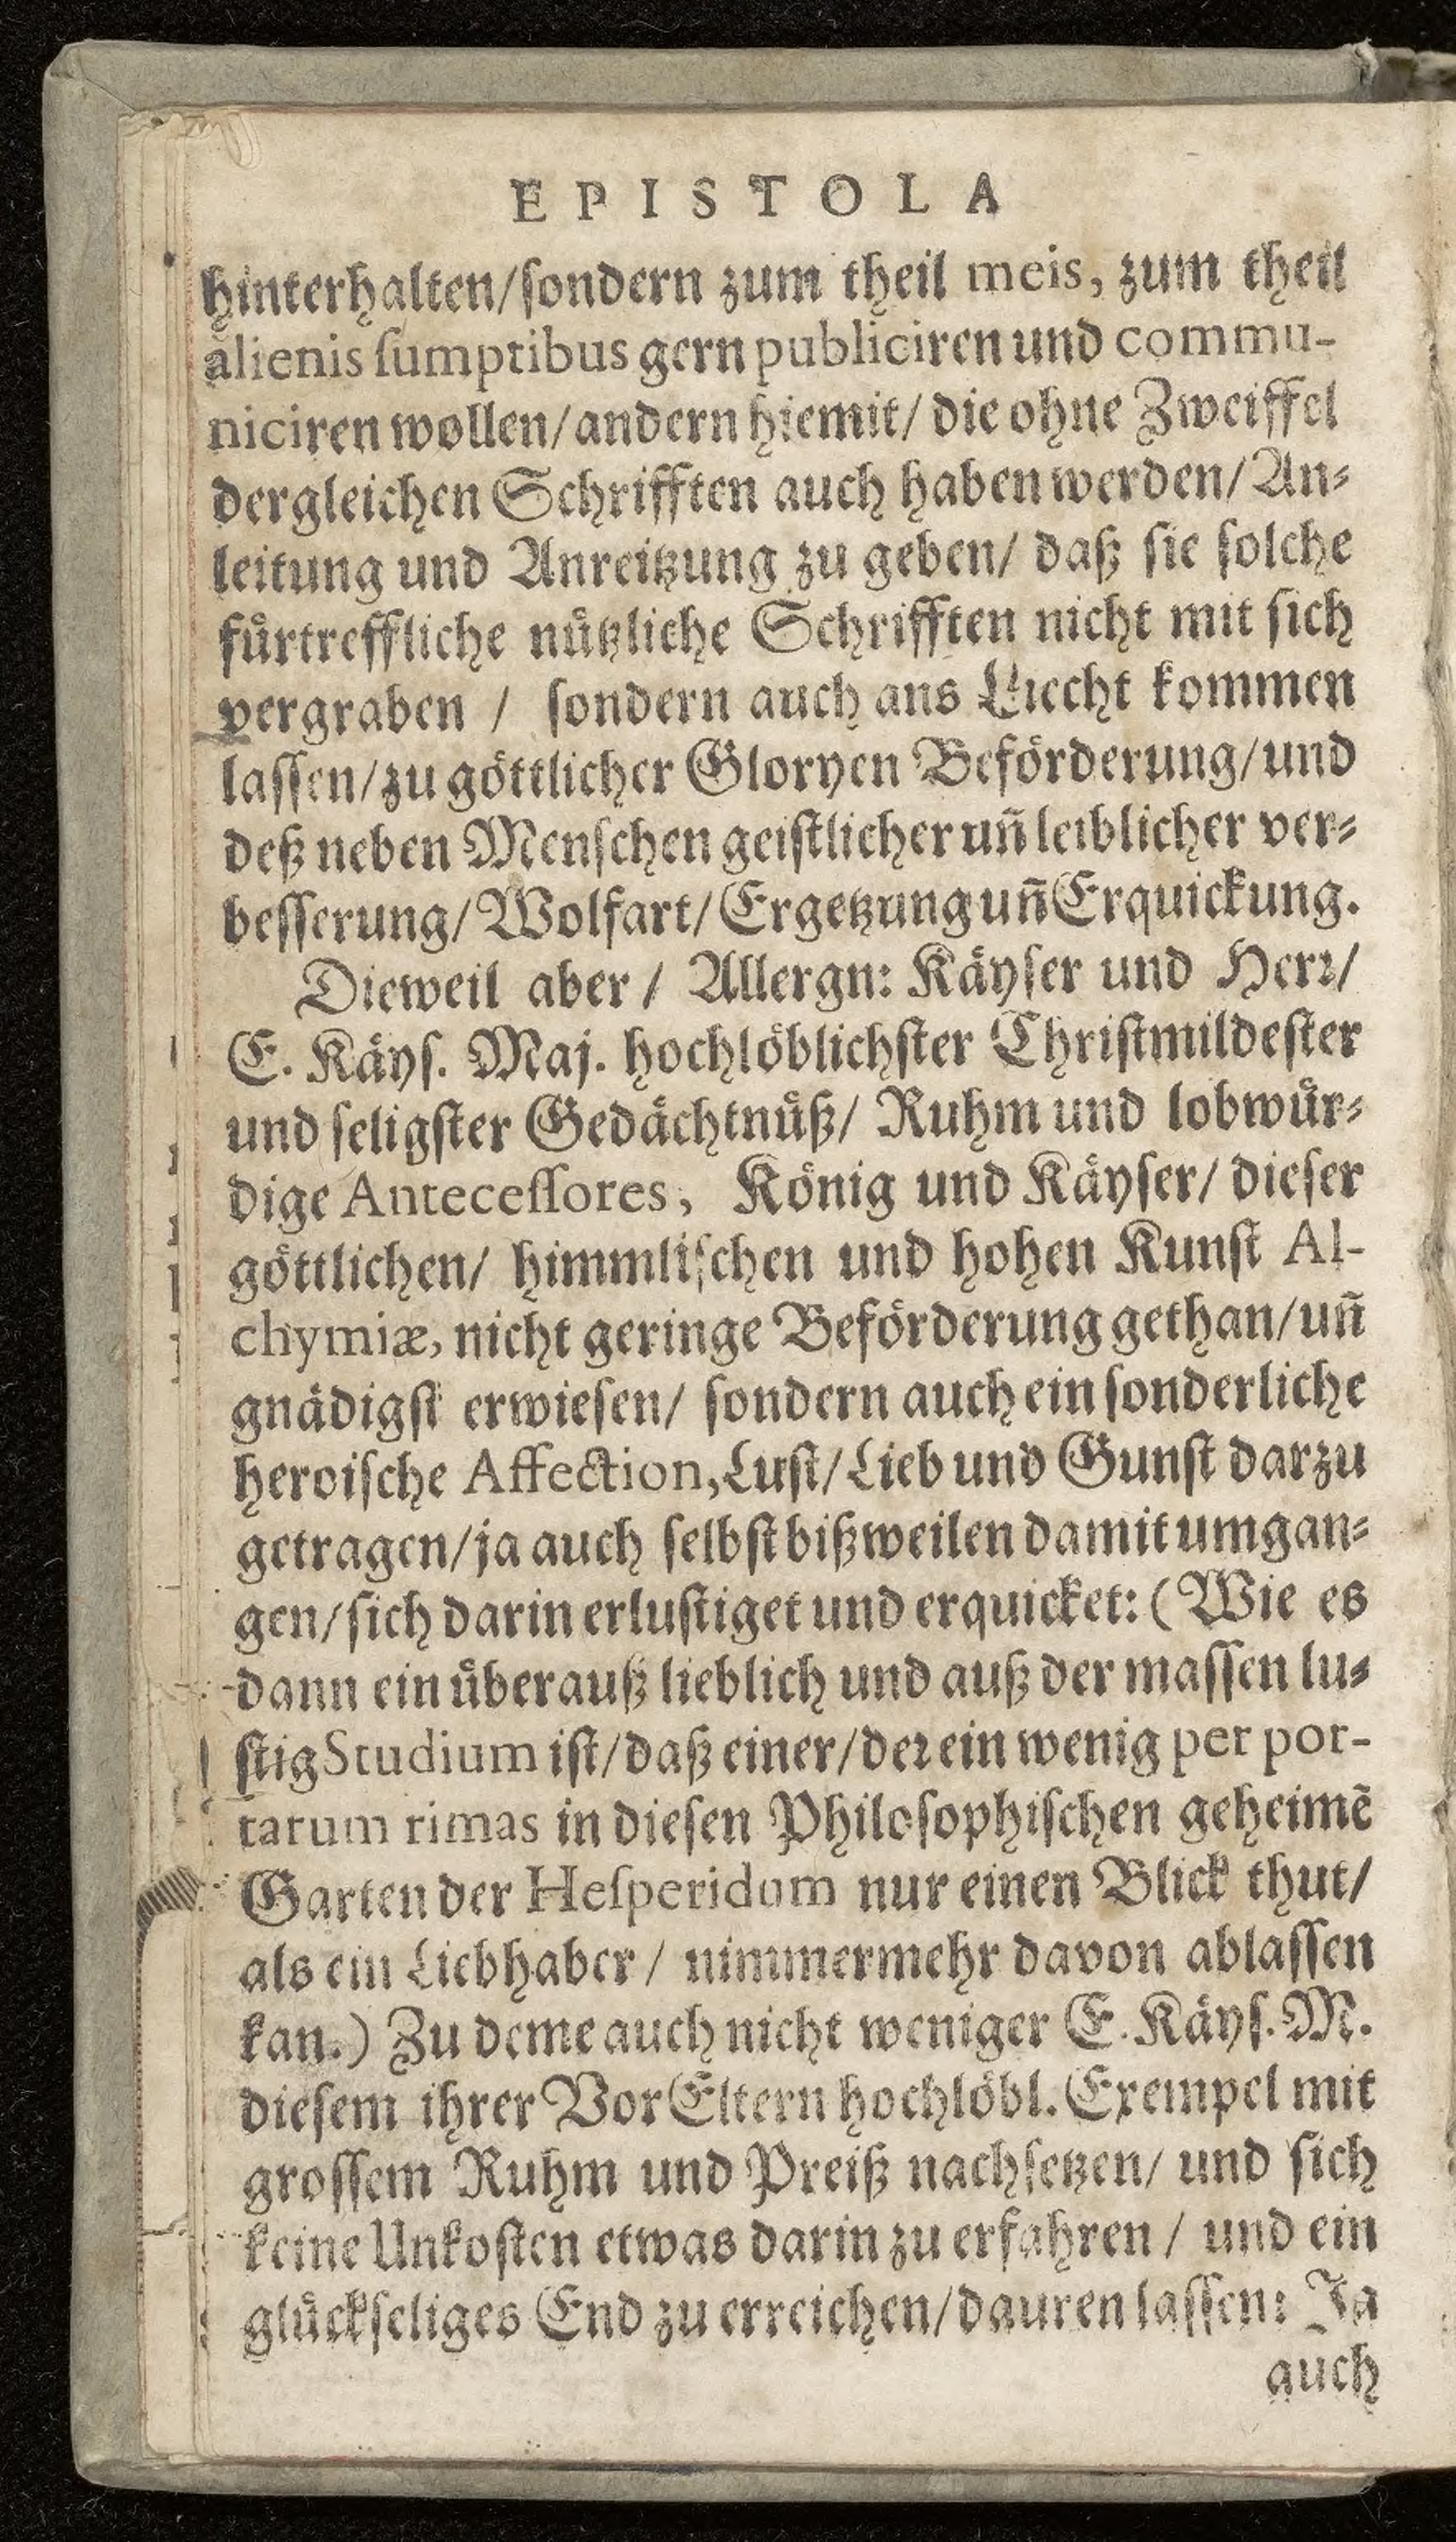 EPISTOLA
hinterhalten/ſondern zum theil meis, zum theil
alienis ſumptibus gern publiciren und commu-
niciren wollen/andern hiemit/ die ohne Zweiffel
dergleichen Schrifften auch haben werden/An⸗
leitung und Anreitzung zu geben/ daß ſie ſolche
fuͤrtreffliche nuͤtzliche Schrifften nicht mit ſich
vergraben / ſondern auch ans Liecht kommen
laſſen/zu goͤttlicher Gloryen Befoͤrderung/und
deß neben Menſchen geiſtlicher uñ leiblicher ver⸗
beſſerung/Wolfart/Ergetzung uñ Erquickung.
Dieweil aber / Allergn: Kaͤyſer und Herꝛ/
E. Kaͤyſ. Maj. hochloͤblichſter Chriſtmildeſter
und ſeligſter Gedaͤchtnuͤß/ Ruhm und lobwuͤr⸗
dige Anteceſſores, Koͤnig und Kaͤyſer/ dieſer
goͤttlichen/ himmliſchen und hohen Kunſt Al-
chymiæ, nicht geringe Befoͤrderung gethan/uñ
gnaͤdigſt erwieſen/ ſondern auch ein ſonderliche
heroiſche Affection, Luſt/Lieb und Gunſt darzu
getragen/ja auch ſelbſt bißweilen damit umgan⸗
gen/ſich darin erluſtiget und erquicket: (Wie es
dann ein uͤberauß lieblich und auß der maſſen lu⸗
ſtig Studium iſt/daß einer/deꝛ ein wenig per por-
tarum rimas in dieſen Philoſophiſchen geheimẽ
Garten der Heſperidum nur einen Blick thut/
als ein Liebhaber / nimmermehr davon ablaſſen
kan.) Zu deme auch nicht weniger E. Kaͤyſ. M.
dieſem ihrer VorEltern hochloͤbl. Exempel mit
groſſem Ruhm und Preiß nachſetzen/ und ſich
keine Unkoſten etwas darin zu erfahren / und ein
gluͤckſeliges End zu erreichen/dauren laſſen: Ja
auch